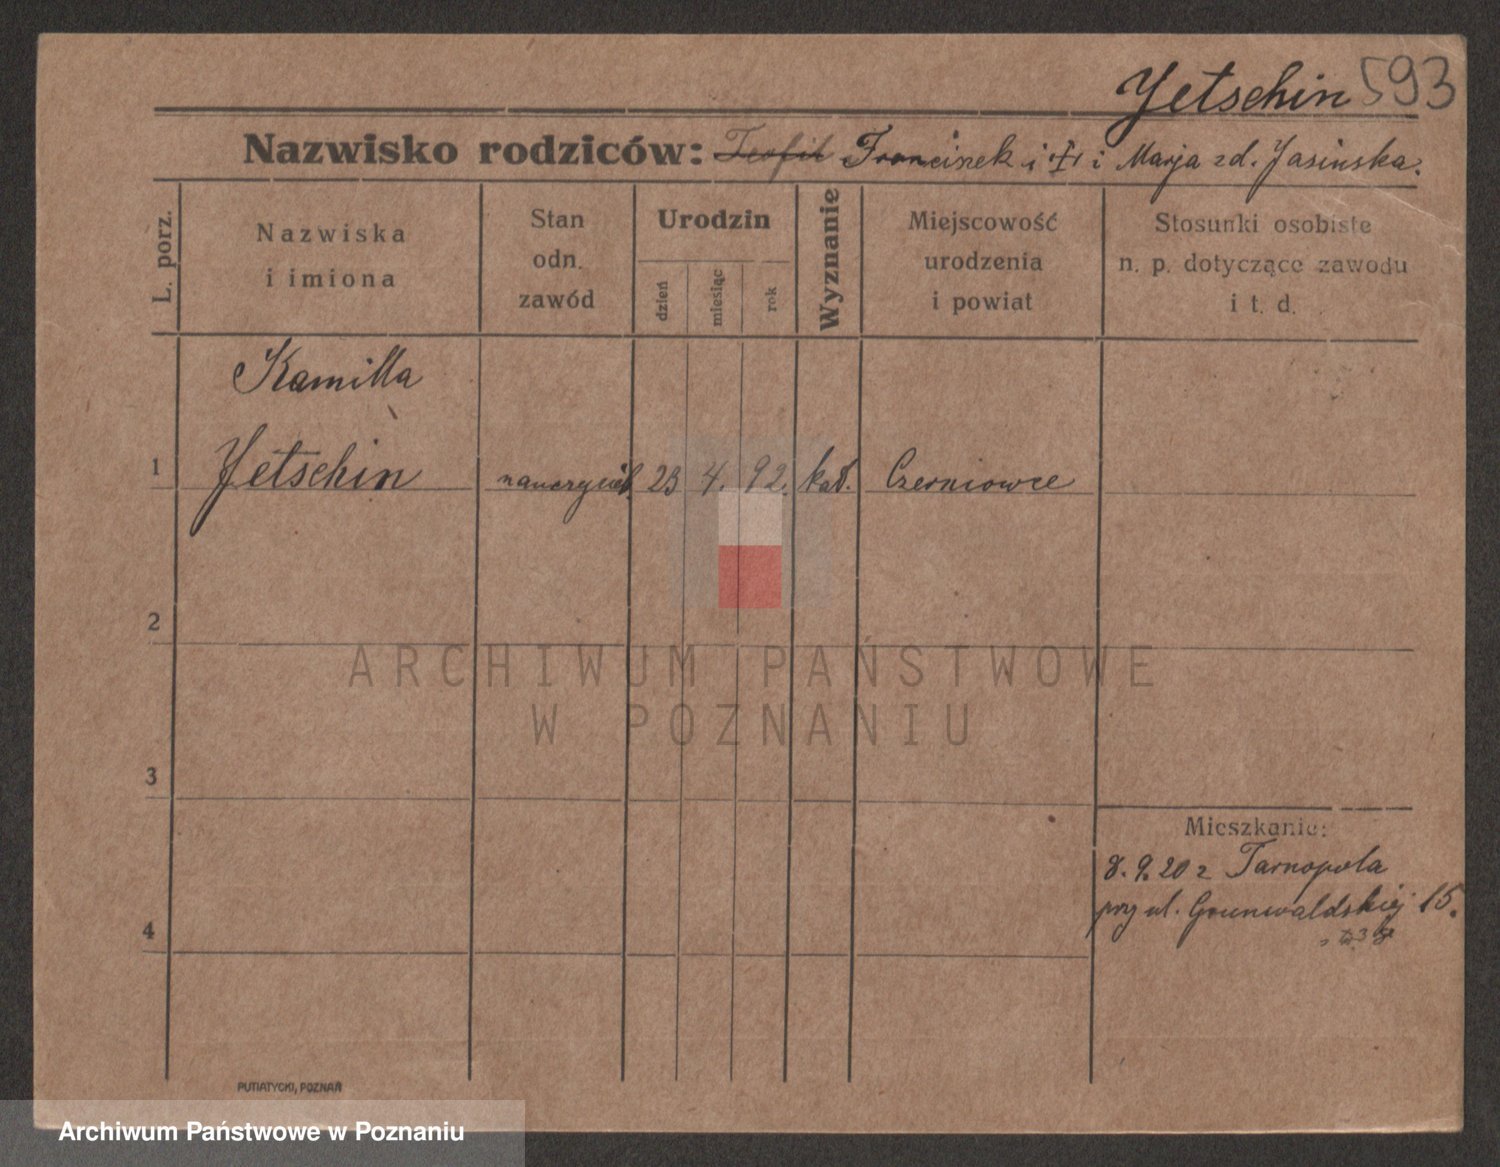 Yetschin 593
Nazwisko rodziców: Teofil Franciszek i Marja zd. Jasinska.
L. porz.
Nazwiska
i imiona
Stan
odn.
zawód
Urodzin
dzień
miesiąc
rok
Wyznanie
Miejscowość
urodzenia
i powiat
Stosunki osobiste
n. p. dotyczące zawodu
i t. d.
Kamilla
1 Yetschin nauczyciel. 23 4. 92. kat. Czerniowce
2
ARCHIWUM PAŃSTWOWE
W POZNANIU
3
Mieszkanie:
8. 9. 20 z Tarnopola
przy ul. Grunwaldskiej 15.
4
PUTIATYCKI, POZNAŃ
Archiwum Państwowe w Poznaniu